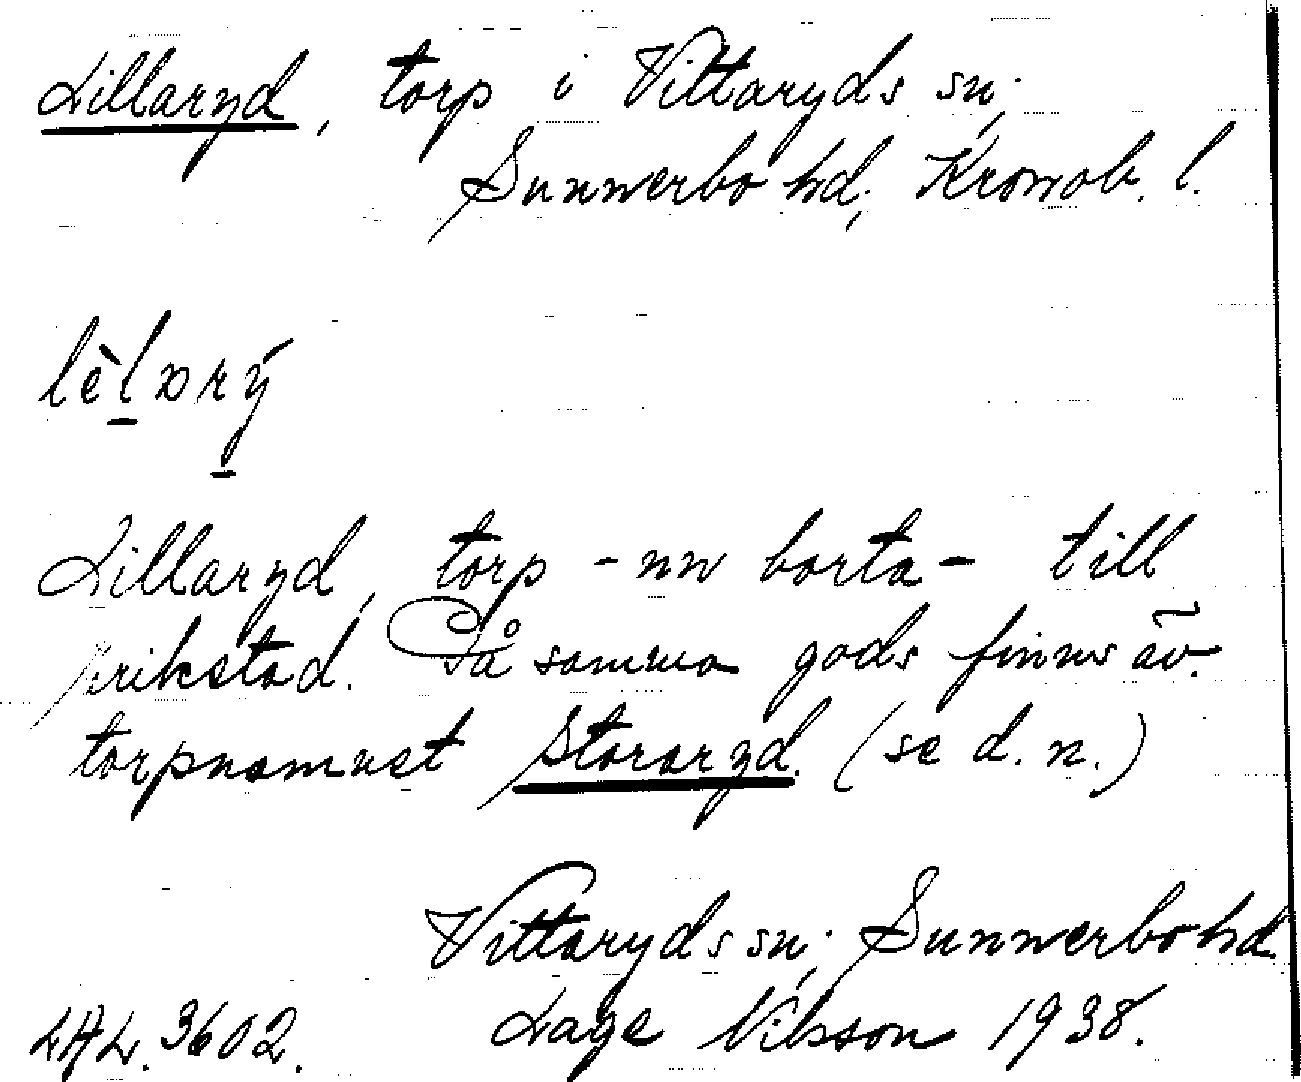 Lillaryd, torp i Vittaryds sn.
Sunnerbo hd, Kronob. l.
lèlxrý
Lillaryd, torp - nu borta - till
Erikstad. På samma gods finns äv.
torpnamnet Stararyd. (se d. n.)
Vittaryds sn, Sunnerbo hd.
LAL. 3602. Lage Nilsson 1938.